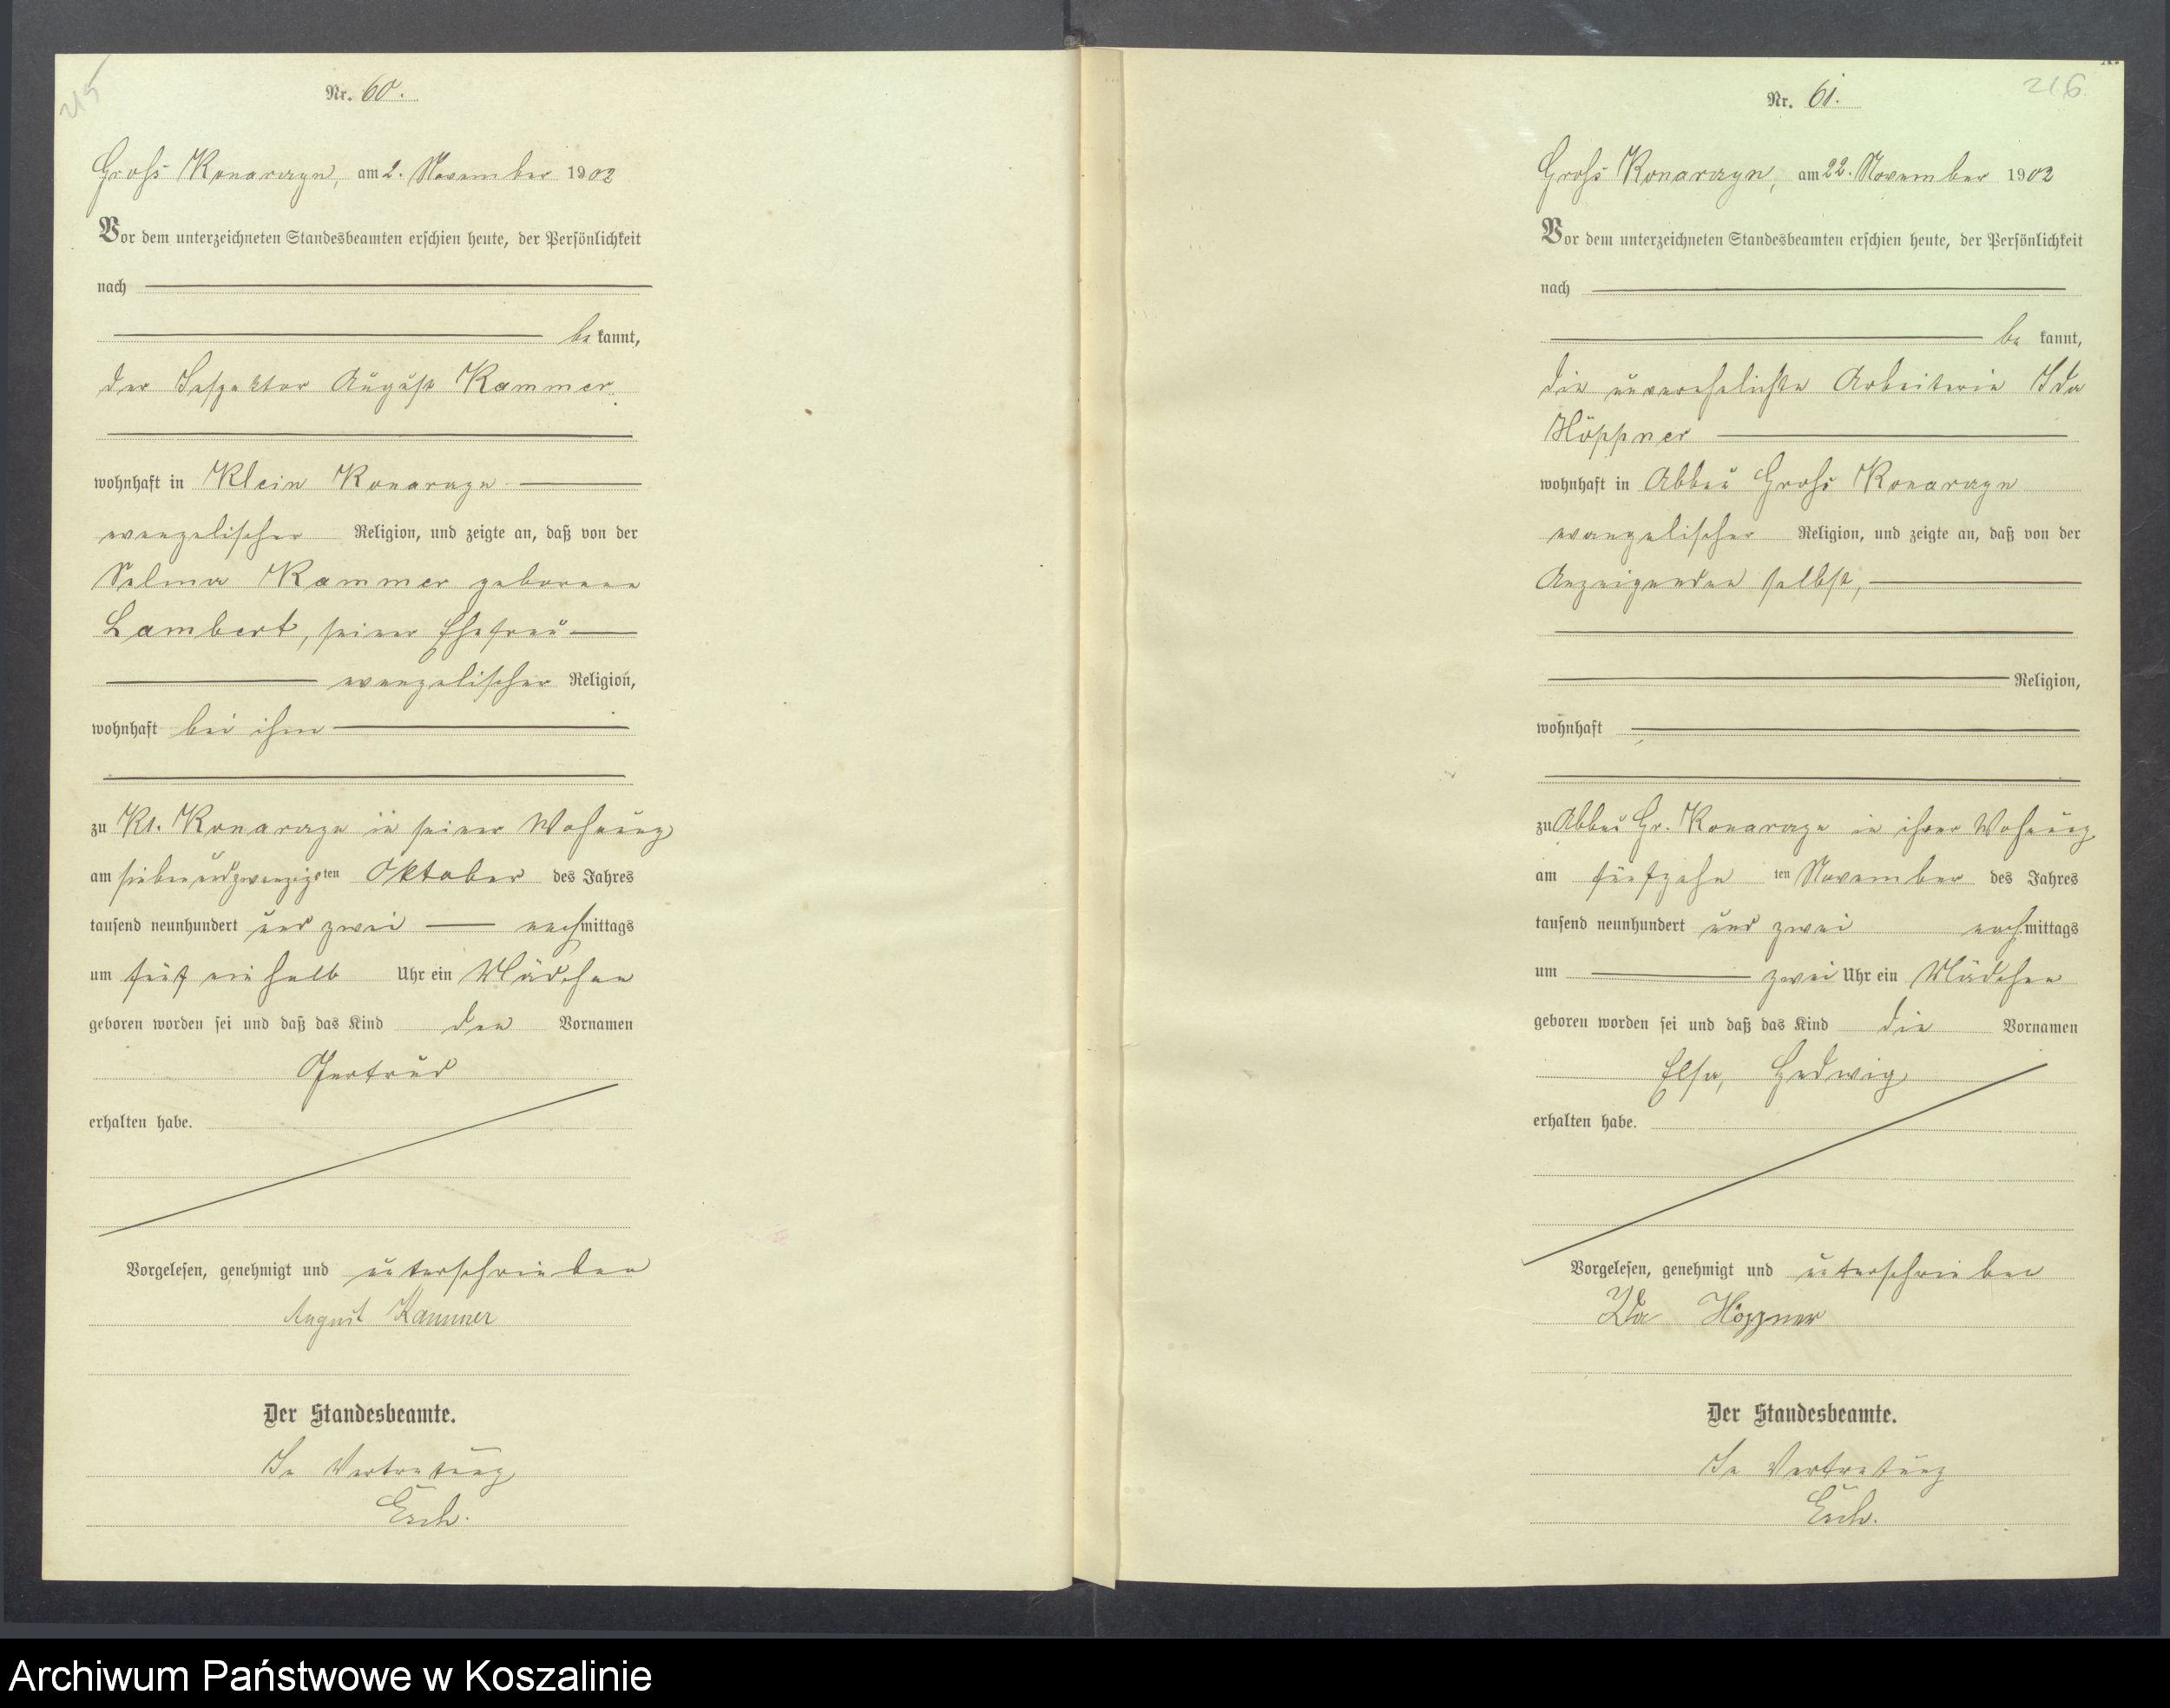 215
Nr. 60.
Groß Konarczyn, am 2. November 1902
Vor dem unterzeichneten Standesbeamten erschien heute, der Persönlichkeit
nach
be kannt,
der Inspektor August Kammer
wohnhaft in Klein Konarczyn
evangelischer Religion, und zeigte an, daß von der
Selma Kammer geborenen
Lambert, seiner Ehefrau
evangelischer Religion,
wohnhaft bei ihm
zu Kl. Konarczyn in seiner Wohnung
am siebenundzwanzigsten Oktober des Jahres
tausend neunhundert und zwei nachmittags
um fünf ein halb Uhr ein Mädchen
geboren worden sei und daß das Kind den Vornamen
Gertrud
erhalten habe.
Vorgelesen, genehmigt und unterschrieben
August Kammer
Der Standesbeamte.
In Vertretung
Esch.
216
Nr. 61.
Groß Konarczyn, am 22. November 1902
Vor dem unterzeichneten Standesbeamten erschien heute, der Persönlichkeit
nach
be kannt,
die unverehelichte Arbeiterin Ida
Höppner
wohnhaft in Abbau Groß Konarczyn
evangelischer Religion, und zeigte an, daß von der
Anzeigenden selbst,
Religion,
wohnhaft
zu Abbau Gr. Konarczyn in ihrer Wohnung
am fünfzehn ten November des Jahres
tausend neunhundert und zwei nachmittags
um zwei Uhr ein Mädchen
geboren worden sei und daß das Kind die Vornamen
Elsa, Hedwig
erhalten habe.
Vorgelesen, genehmigt und unterschrieben
Ida Höppner
Der Standesbeamte.
In Vertretung
Esch.
Archiwum Państwowe w Koszalinie